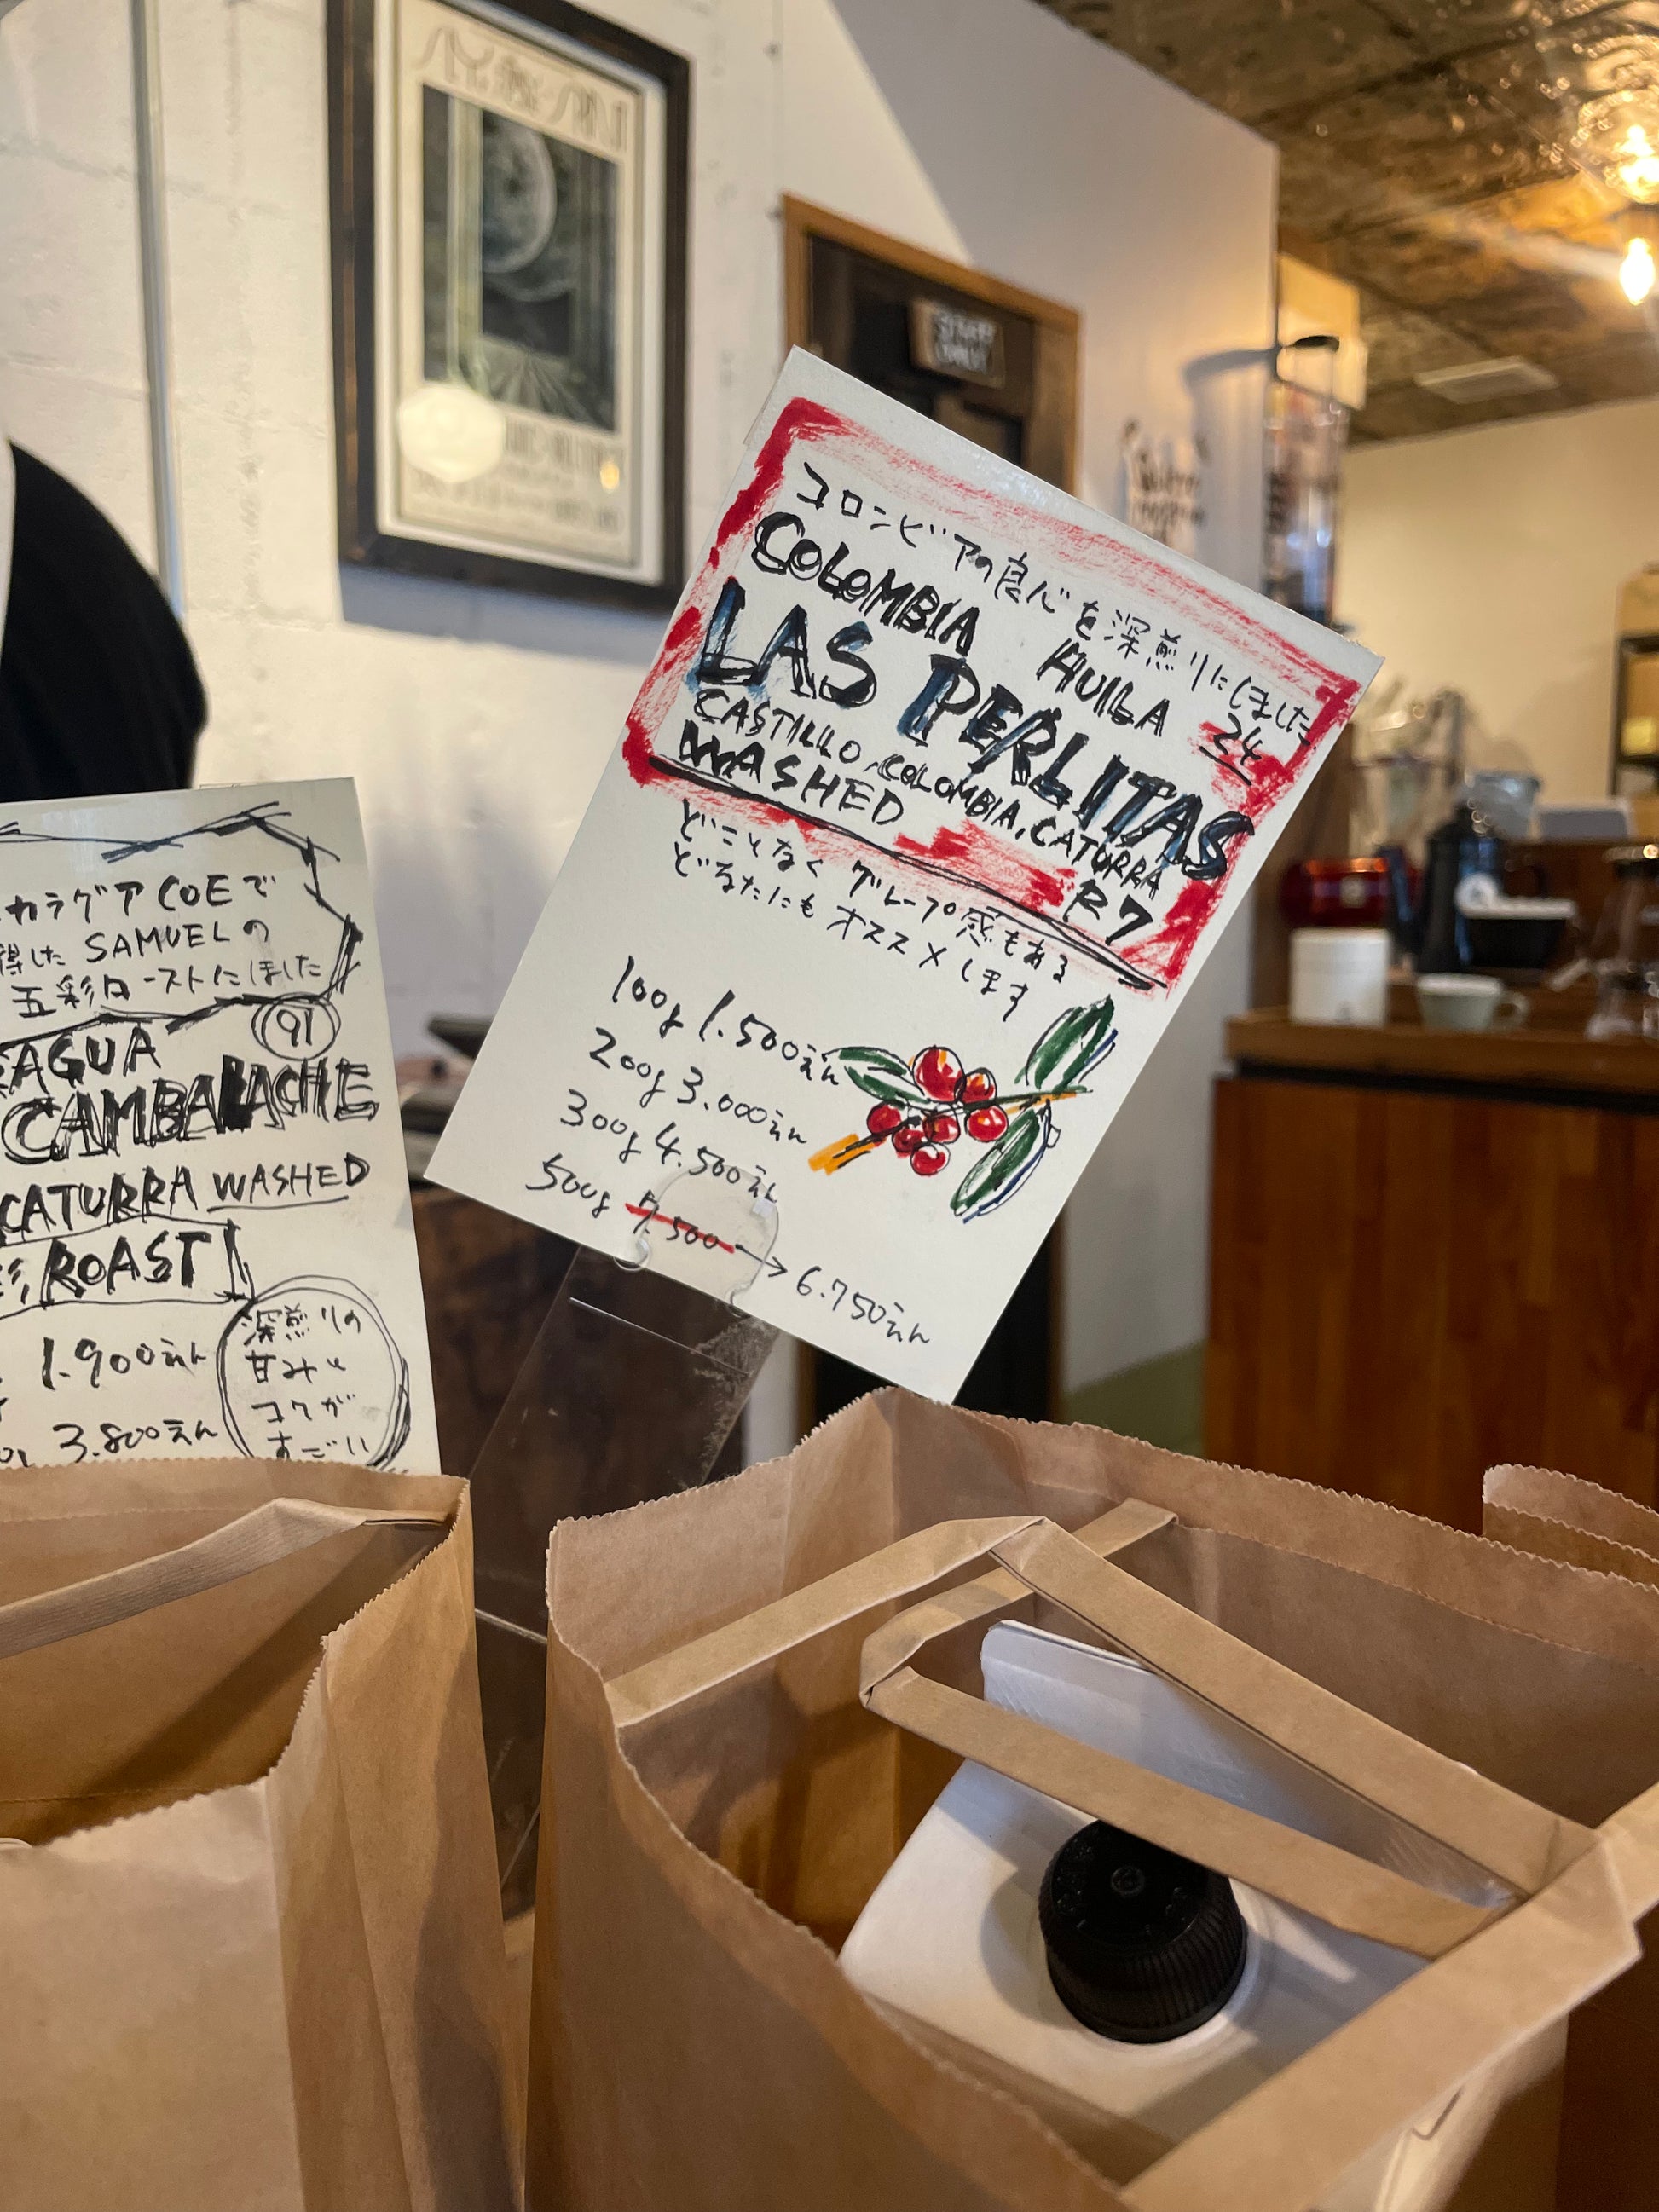 STAFF
ONLY
コロンビアの良心を深煎りにしました
COLOMBIA HUILA 24
LAS PERLITAS
CASTILLO, COLOMBIA, CATURRA
WASHED R7
どことなくグレープ感もある
どなたにもオススメします
100g 1.500えん
200g 3.000えん
300g 4.500えん
500g 7.500→6.750えん
カラグア COEで
得した SAMUELの
五彩ローストにしました
91
AGUA
CAMBALACHE
CATURRA WASHED
彡 ROAST
1.900えん
3.800えん
深煎りの
甘みと
コクが
すごい